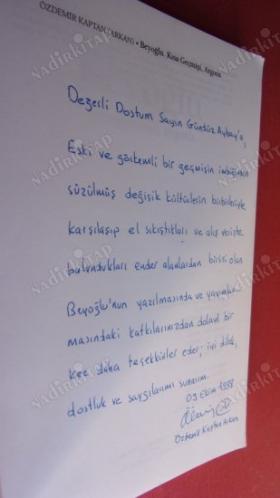 ÖZDEMİR KAPTAN (ARKAN) • Beyoğlu, Kısa Geçmişi, Argosu
Değerli Dostum Sayın Gündüz Aybay'a,
Eski ve görkemli bir geçmişin imbiğinden
süzülmüş değişik kültürlerin birbirleriyle
karşılaşıp el sıkıştıkları ve alış verişte
bulundukları ender alanlardan birisi olan
Beyoğlu'nun yazılmasında ve yayımlan
masındaki katkılarınızdan dolayı bir
kez daha teşekkürler eder, iyi dilek,
dostluk ve saygılarımı sunarım.
03 Ekim 1988
Özdemir Kaptan Arkan
NadirKitap